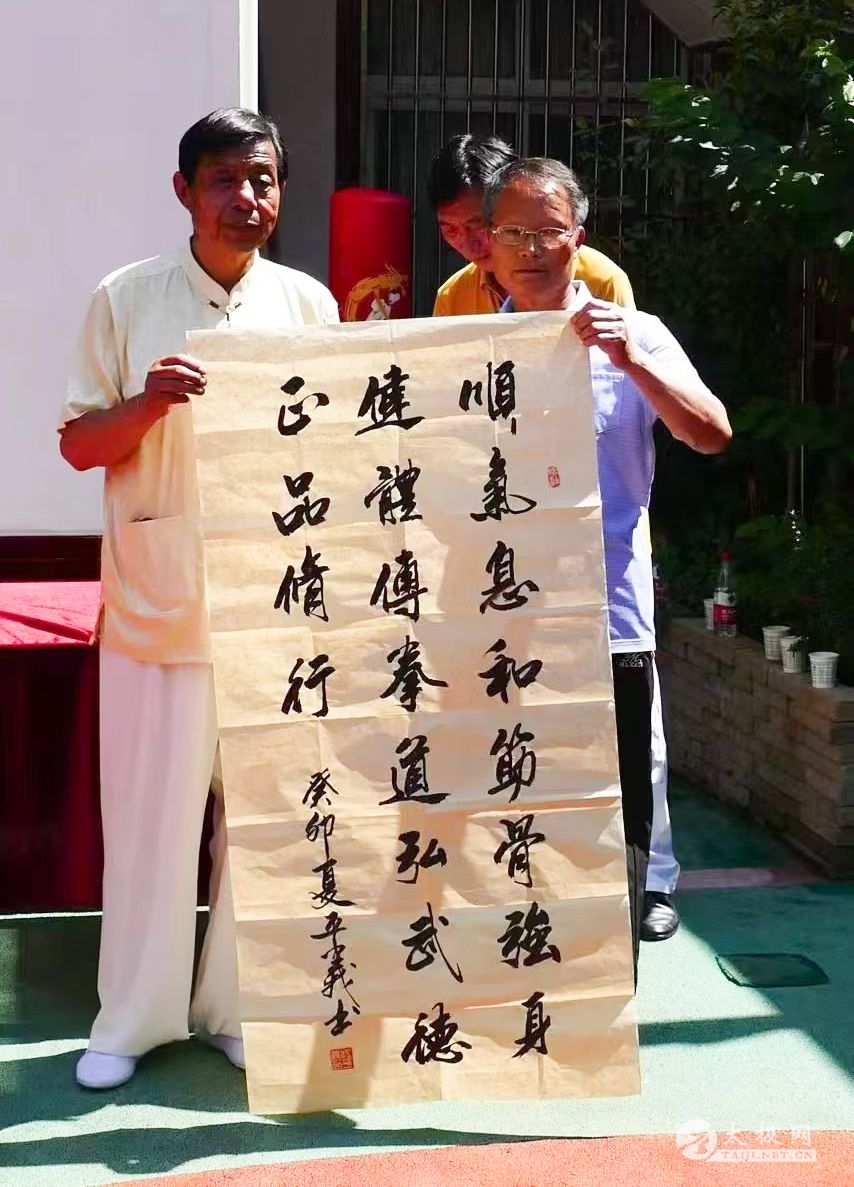 順氣息和筋骨強身
健體傳拳道弘武德
正品脩行
癸卯夏平義书
太极网
TAIJI.NET.CN